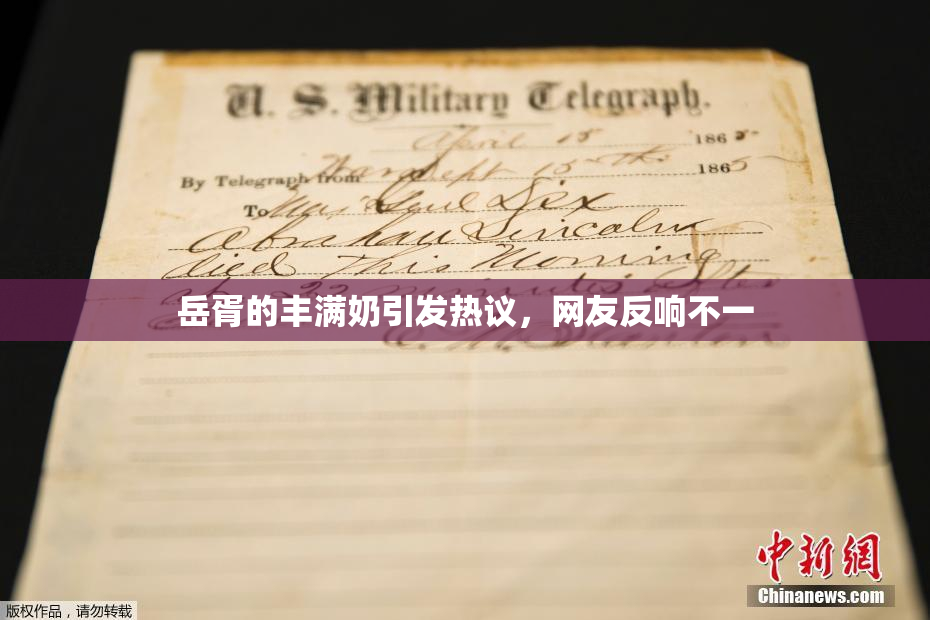 U. S. Military Telegraph.
April 15 1865
By Telegraph from War Dept 15th 1865
To Maj Genl Dix
Abraham Lincoln
died This Morning
at 22 minutes After
岳胥的丰满奶引发热议，网友反响不一
E. M. Stanton
中新网
Chinanews.com
版权作品，请勿转载